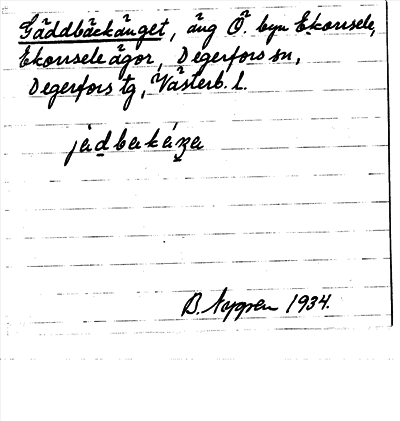 Gäddbäckänget, äng Ö. byn Ekorrsele,
Ekorrsele ägor, Degerfors sn,
Degerfors tg, Västerb. l.
B. Nygren 1934.